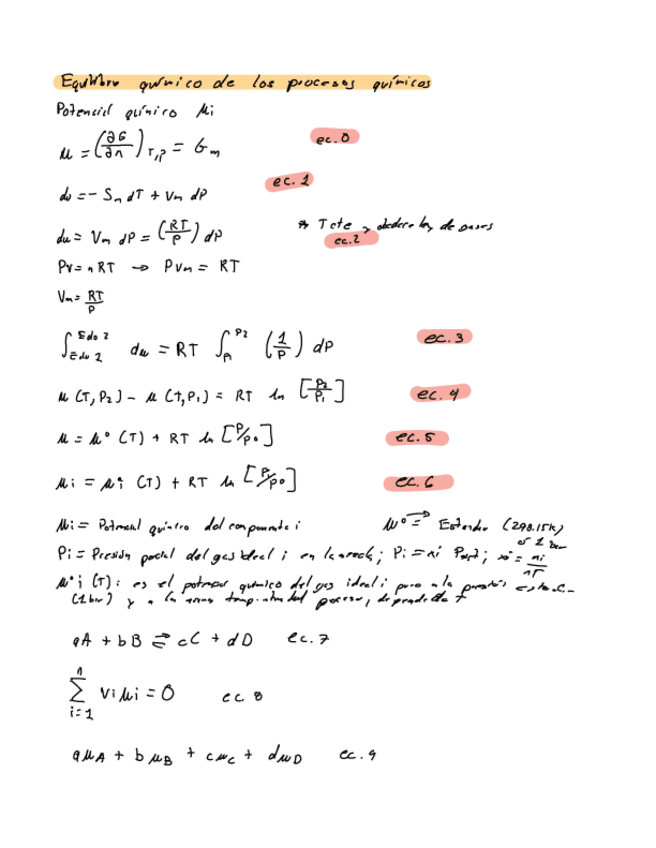 Equilibro químico de los procesos químicos
Potencial químico μi
μ = (∂G/∂n) T,P = Gm ec. 0
ec. 1
dμ = - Sm dT + Vm dP
dμ = Vm dP = (RT/P) dP * T cte y obedece ley de gases
ec. 2
PV = nRT → PVm = RT
Vm = RT/P
∫ Edo 2 Edo 1 dμ = RT ∫ P2 P1 (1/P) dP ec. 3
μ (T, P2) - μ (T, P1) = RT ln [P2/P1] ec. 4
μ = μ° (T) + RT ln [P/P°] ec. 5
μi = μ°i (T) + RT ln [Pi/P°] ec. 6
μi = Potencial químico del componente i μ° ⇒ Estandar (298.15K)
1 bar
Pi = Presión parcial del gas ideal i en la mezcla; Pi = xi
μ°i (T): es el potencial químico del gas ideal i puro a la presión
(1 bar) y a la misma temperatura del proceso, depende de T
aA + bB ⇌ cC + dD ec. 7
n
∑ νi μi = 0 ec. 8
i=1
aμA + bμB + cμC + dμD ec. 9